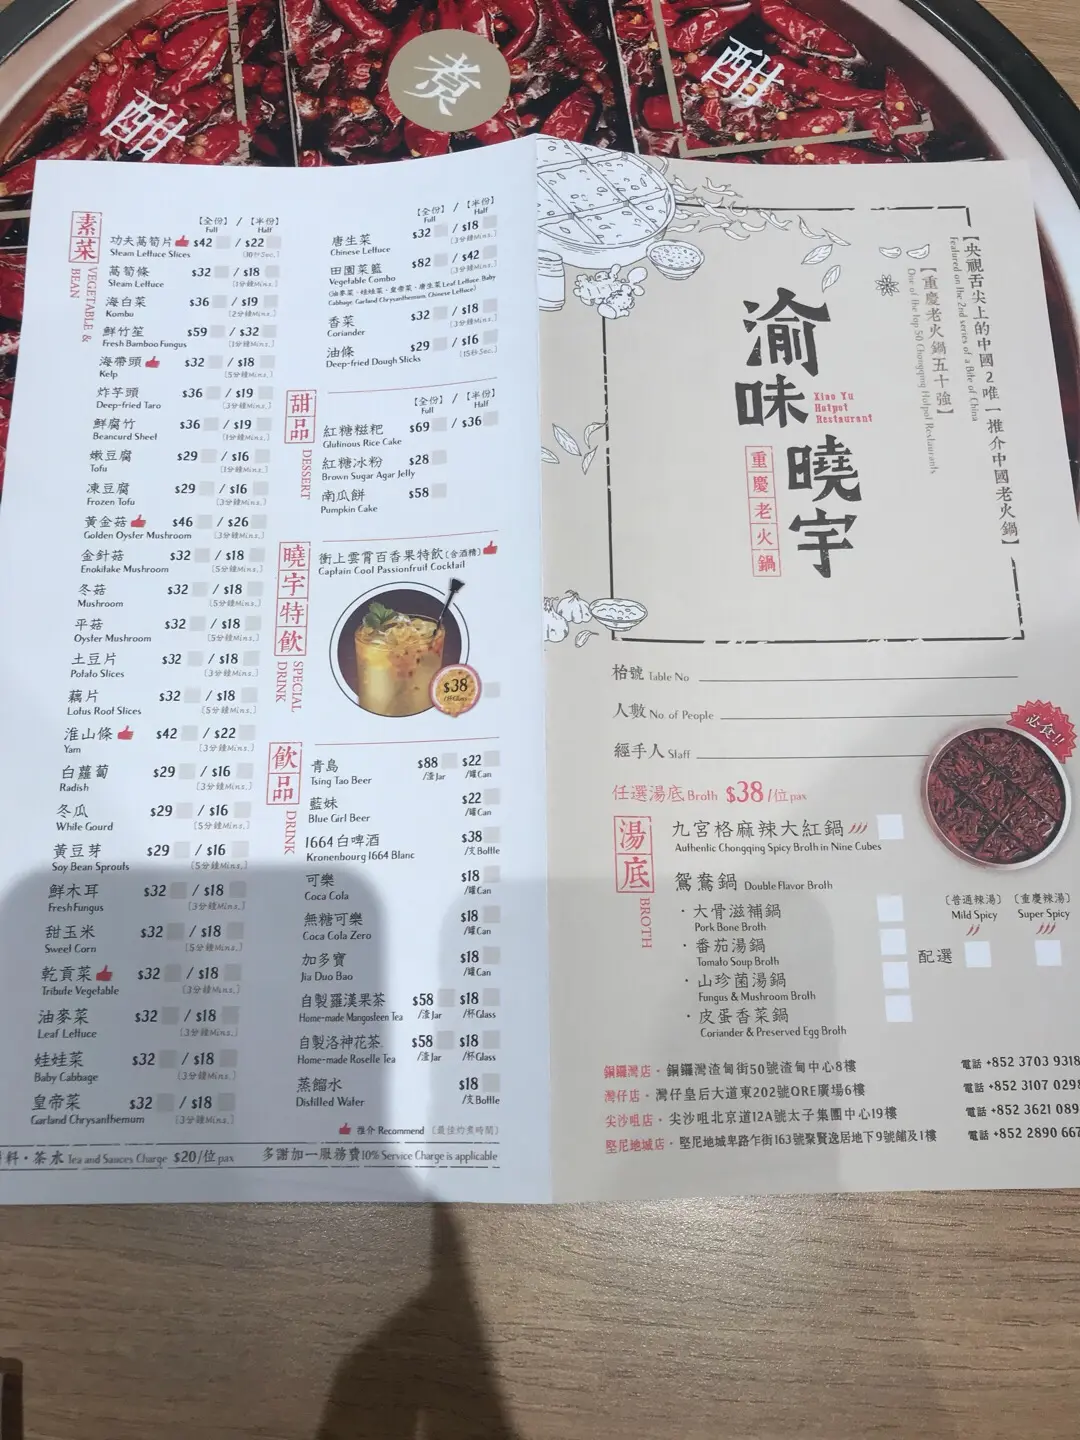 煮
酣
酣
素菜
VEGETABLE & BEAN
【全份】 / 【半份】
Full Half
功夫萵筍片 $42 / $22
Steam Lettuce Slices [30秒Sec.]
萵筍條 $32 / $18
Steam Lettuce [1分鐘Mins.]
海白菜 $36 / $19
Kombu [2分鐘Mins.]
鮮竹笙 $59 / $32
Fresh Bamboo Fungus [1分鐘Mins.]
海帶頭 $32 / $18
Kelp [5分鐘Mins.]
炸芋頭 $36 / $19
Deep-fried Taro [3分鐘Mins.]
鮮腐竹 $36 / $19
Beancurd Sheet [1分鐘Mins.]
嫩豆腐 $29 / $16
Tofu [1分鐘Mins.]
凍豆腐 $29 / $16
Frozen Tofu [3分鐘Mins.]
黃金菇 $46 / $26
Golden Oyster Mushroom [3分鐘Mins.]
金針菇 $32 / $18
Enokitake Mushroom [5分鐘Mins.]
冬菇 $32 / $18
Mushroom [5分鐘Mins.]
平菇 $32 / $18
Oyster Mushroom [5分鐘Mins.]
土豆片 $32 / $18
Potato Slices [3分鐘Mins.]
藕片 $32 / $18
Lotus Root Slices [5分鐘Mins.]
淮山條 $42 / $22
Yam [3分鐘Mins.]
白蘿蔔 $29 / $16
Radish [3分鐘Mins.]
冬瓜 $29 / $16
White Gourd [5分鐘Mins.]
黃豆芽 $29 / $16
Soy Bean Sprouts [5分鐘Mins.]
鮮木耳 $32 / $18
Fresh Fungus [3分鐘Mins.]
甜玉米 $32 / $18
Sweet Corn [5分鐘Mins.]
乾貢菜 $32 / $18
Tribute Vegetable [3分鐘Mins.]
油麥菜 $32 / $18
Leaf Lettuce [3分鐘Mins.]
娃娃菜 $32 / $18
Baby Cabbage [3分鐘Mins.]
皇帝菜 $32 / $18
Garland Chrysanthemum [3分鐘Mins.]
【全份】 / 【半份】
Full Half
唐生菜 $32 / $18
Chinese Lettuce [3分鐘Mins.]
田園菜籃 $82 / $42
Vegetable Combo [3分鐘Mins.]
(油麥菜、娃娃菜、皇帝菜、唐生菜 Leaf Lettuce, Baby
Cabbage, Garland Chrysanthemum, Chinese Lettuce)
香菜 $32 / $18
Coriander [3分鐘Mins.]
油條 $29 / $16
Deep-fried Dough Sticks [15秒Sec.]
甜品
DESSERT
【全份】 / 【半份】
Full Half
紅糖糍粑 $69 / $36
Glutinous Rice Cake
紅糖冰粉 $28
Brown Sugar Agar Jelly
南瓜餅 $58
Pumpkin Cake
曉宇特飲
SPECIAL DRINK
衝上雲霄百香果特飲(含酒精)
Captain Cool Passionfruit Cocktail
$38
/杯Glass
飲品
DRINK
青島 $88 $22
Tsing Tao Beer /渣Jar /罐Can
藍妹 $22
Blue Girl Beer /罐Can
1664白啤酒 $38
Kronenbourg 1664 Blanc /支Bottle
可樂 $18
Coca Cola /罐Can
無糖可樂 $18
Coca Cola Zero /罐Can
加多寶 $18
Jia Duo Bao /罐Can
自製羅漢果茶 $58 $18
Home-made Mangosteen Tea /渣Jar /杯Glass
自製洛神花茶 $58 $18
Home-made Roselle Tea /渣Jar /杯Glass
蒸餾水 $18
Distilled Water /支Bottle
推介 Recommend [最佳灼煮時間]
料・茶水 Tea and Sauces Charge $20/位pax 多謝加一服務費10% Service Charge is applicable
【央視舌尖上的中國2唯一推介中國老火鍋】
Featured on the 2nd series of a Bite of China
【重慶老火鍋五十強】
One of the top 50 Chongqing Hotpot Restaurants
渝味
曉宇
Xiao Yu
Hotpot
Restaurant
重慶老火鍋
枱號 Table No
人數 No. of People
經手人 Staff
必食!!
任選湯底 Broth $38/位pax
湯底
BROTH
九宮格麻辣大紅鍋
Authentic Chongqing Spicy Broth in Nine Cubes
鴛鴦鍋 Double Flavor Broth
・大骨滋補鍋
Pork Bone Broth
・番茄湯鍋
Tomato Soup Broth
・山珍菌湯鍋
Fungus & Mushroom Broth
・皮蛋香菜鍋
Coriander & Preserved Egg Broth
配選
[普通辣湯] [重慶辣湯]
Mild Spicy Super Spicy
銅鑼灣店・銅鑼灣渣甸街50號渣甸中心8樓 電話 +852 3703 9318
灣仔店・灣仔皇后大道東202號QRE廣場6樓 電話 +852 3107 0298
尖沙咀店・尖沙咀北京道12A號太子集團中心19樓 電話 +852 3621 089
堅尼地城店・堅尼地城卑路乍街163號聚賢逸居地下9號舖及1樓 電話 +852 2890 667